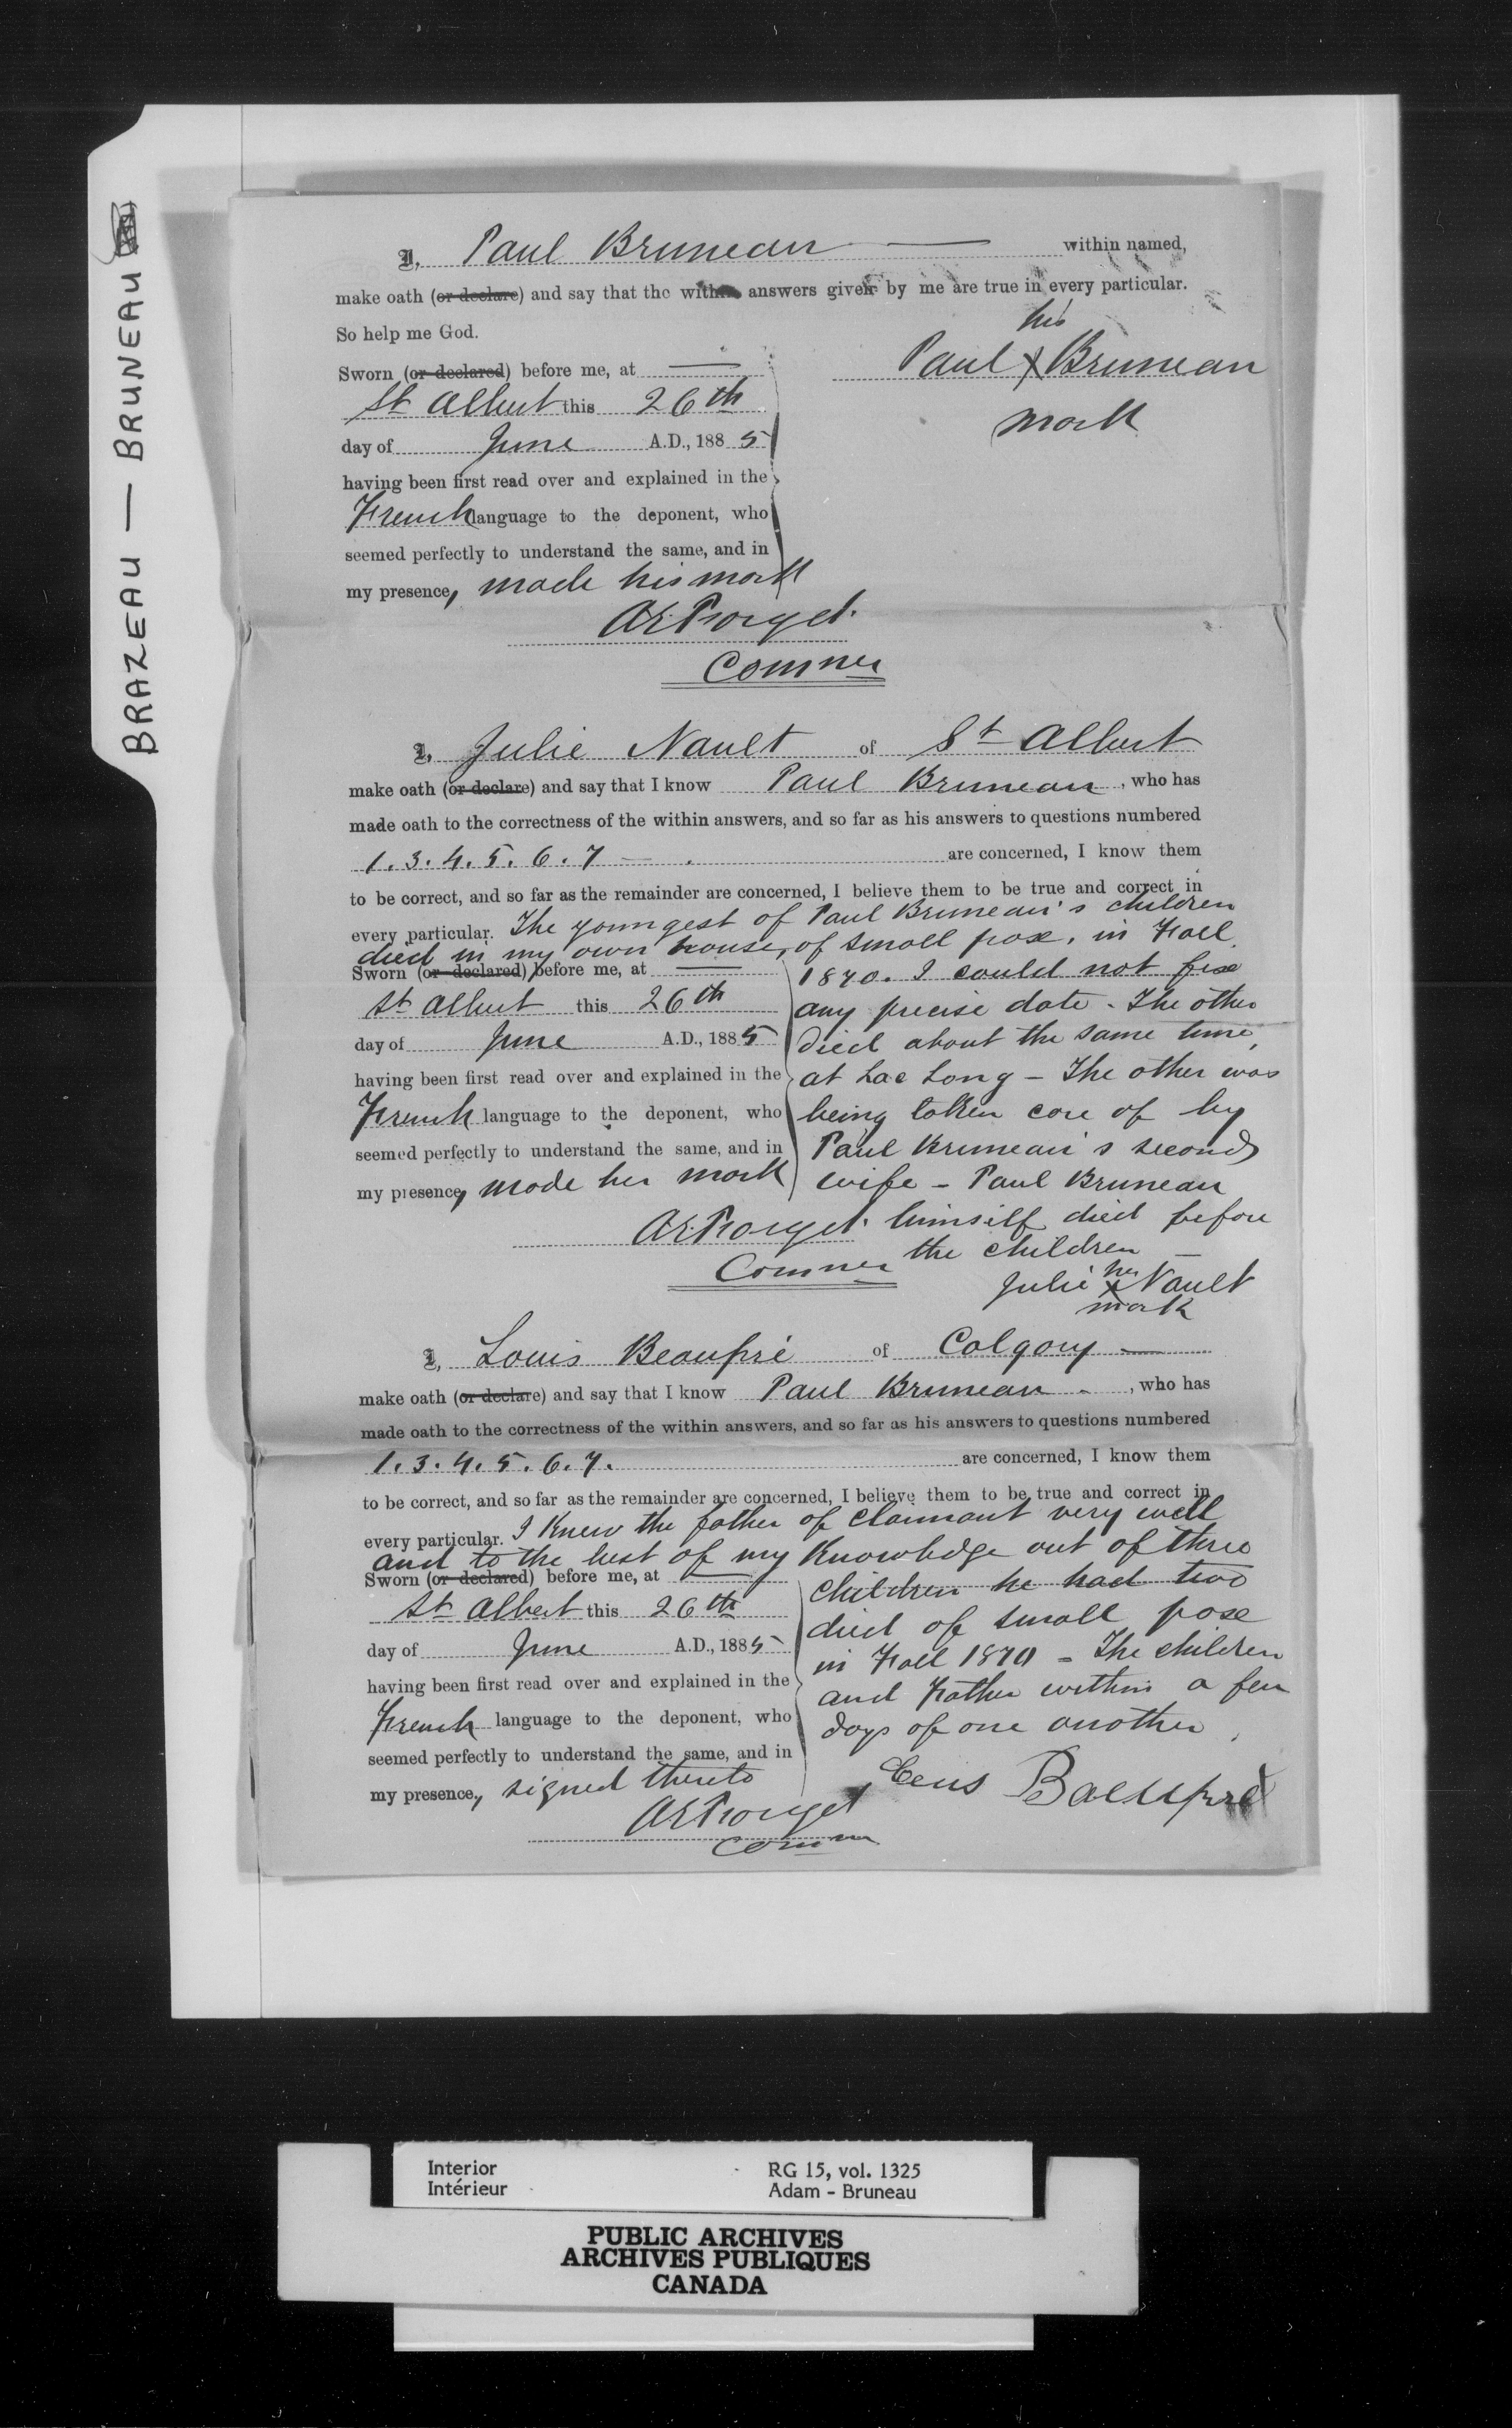 BRAZEAU — BRUNEAU
I, Paul Bruneau — within named,
make oath (or declare) and say that the within answers given by me are true in every particular.
So help me God.
his
Paul X Bruneau
mark
Sworn (or declared) before me, at —
St Albert this 26th
day of June A.D., 1885
having been first read over and explained in the
French language to the deponent, who
seemed perfectly to understand the same, and in
my presence, made his mark
AE Forget.
Commer
I, Julie Nault of St Albert
make oath (or declare) and say that I know Paul Bruneau, who has
made oath to the correctness of the within answers, and so far as his answers to questions numbered
1. 3. 4. 5. 6. 7 — . are concerned, I know them
to be correct, and so far as the remainder are concerned, I believe them to be true and correct in
every particular. The youngest of Paul Bruneau's children
died in my own house, of small pox, in Fall
1870. I could not fix
any precise date - The other
died about the same time,
at Lac Long - The other was
being taken care of by
Paul Bruneau's second
wife - Paul Bruneau
himself died before
the children —
Sworn (or declared) before me, at —
St Albert this 26th
day of June A.D., 1885
having been first read over and explained in the
French language to the deponent, who
seemed perfectly to understand the same, and in
my presence, made her mark
AE Forget.
Commer
her
Julie X Nault
mark
I, Louis Beaupré of Calgary —
make oath (or declare) and say that I know Paul Bruneau - , who has
made oath to the correctness of the within answers, and so far as his answers to questions numbered
1. 3. 4. 5. 6. 7. are concerned, I know them
to be correct, and so far as the remainder are concerned, I believe them to be true and correct in
every particular. I knew the father of claimant very well
and to the best of my knowledge out of three
children he had two
died of small pox
in Fall 1870 - The children
and Father within a few
days of one another.
Sworn (or declared) before me, at —
St Albert this 26th
day of June A.D., 1885
having been first read over and explained in the
French language to the deponent, who
seemed perfectly to understand the same, and in
my presence, signed thereto
AE Forget
Comm
Beaupré
Interior
Intérieur
RG 15, vol. 1325
Adam - Bruneau
PUBLIC ARCHIVES
ARCHIVES PUBLIQUES
CANADA